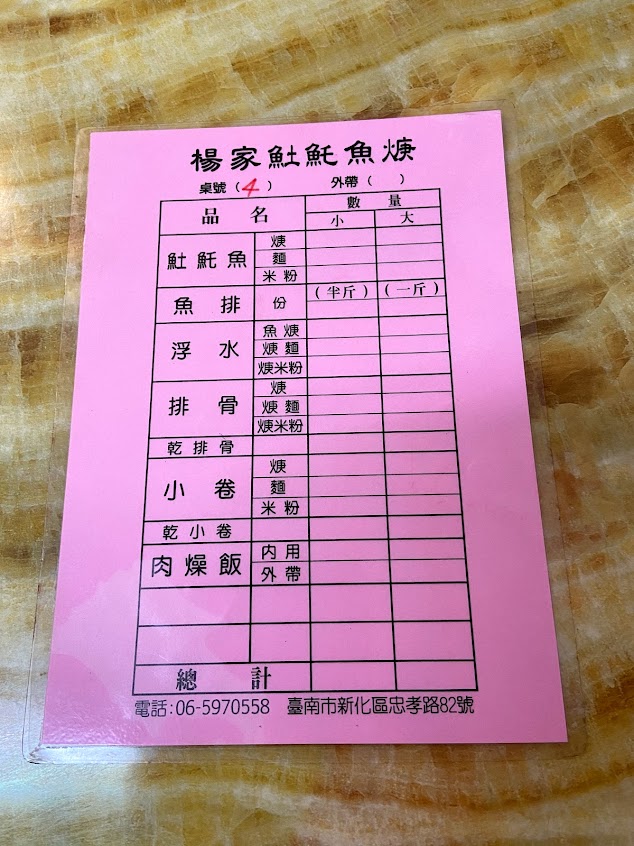 楊家𩵚魠魚焿
桌號（4）　外帶（　）
品名　數量
小　大
𩵚魠魚　焿
麵
米粉
魚排　份　（半斤）　（一斤）
浮水　魚焿
焿麵
焿米粉
排骨　焿
焿麵
焿米粉
乾排骨
小卷　焿
麵
米粉
乾小卷
肉燥飯　內用
外帶
總計
電話:06-5970558　臺南市新化區忠孝路82號